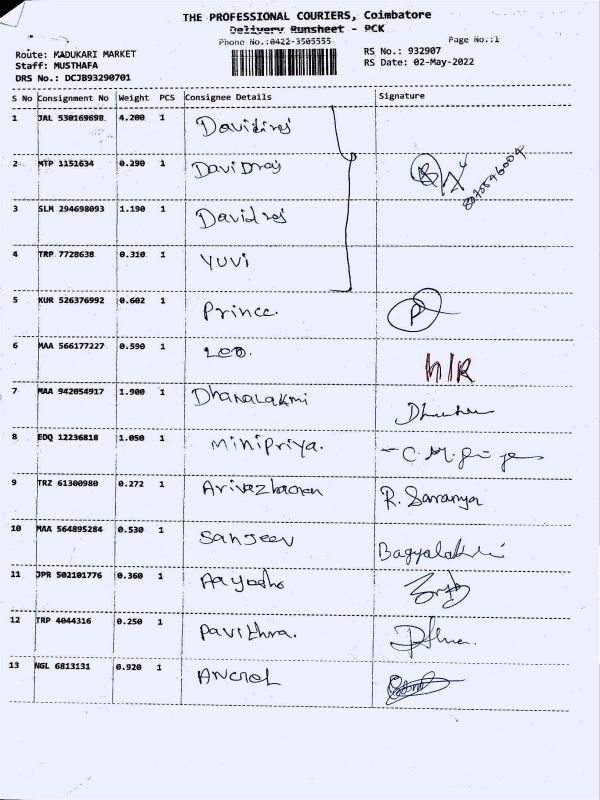 THE PROFESSIONAL COURIERS, Coimbatore
Delivery Runsheet - PCK
Phone No.:0422-3505555
Page No.:1
Route: MADUKARI MARKET
Staff: MUSTHAFA
DRS No.: DCJB93290701
RS No.: 932907
RS Date: 02-May-2022
S No Consignment No Weight PCS Consignee Details Signature
1 JAL 530169698 4.200 1 Davidraj
2 MTP 1151634 0.290 1 Davidraj
8073846004
3 SLM 294698093 1.190 1 Davidraj
4 TRP 7728638 0.310 1 Yuvi
5 KUR 526376992 0.602 1 Prince. P
6 MAA 566177227 0.590 1 Leo. N/R
7 MAA 942054917 1.900 1 Dhanalakmi
8 EDQ 12236818 1.050 1 Minipriya.
9 TRZ 61300980 0.272 1 Arivazhagan R. Saranya
10 MAA 564895284 0.530 1 Sanjeev Bagyalakshmi
11 JPR 502101776 0.360 1
12 TRP 4044316 0.250 1 Pavithra.
13 NGL 6813131 0.920 1